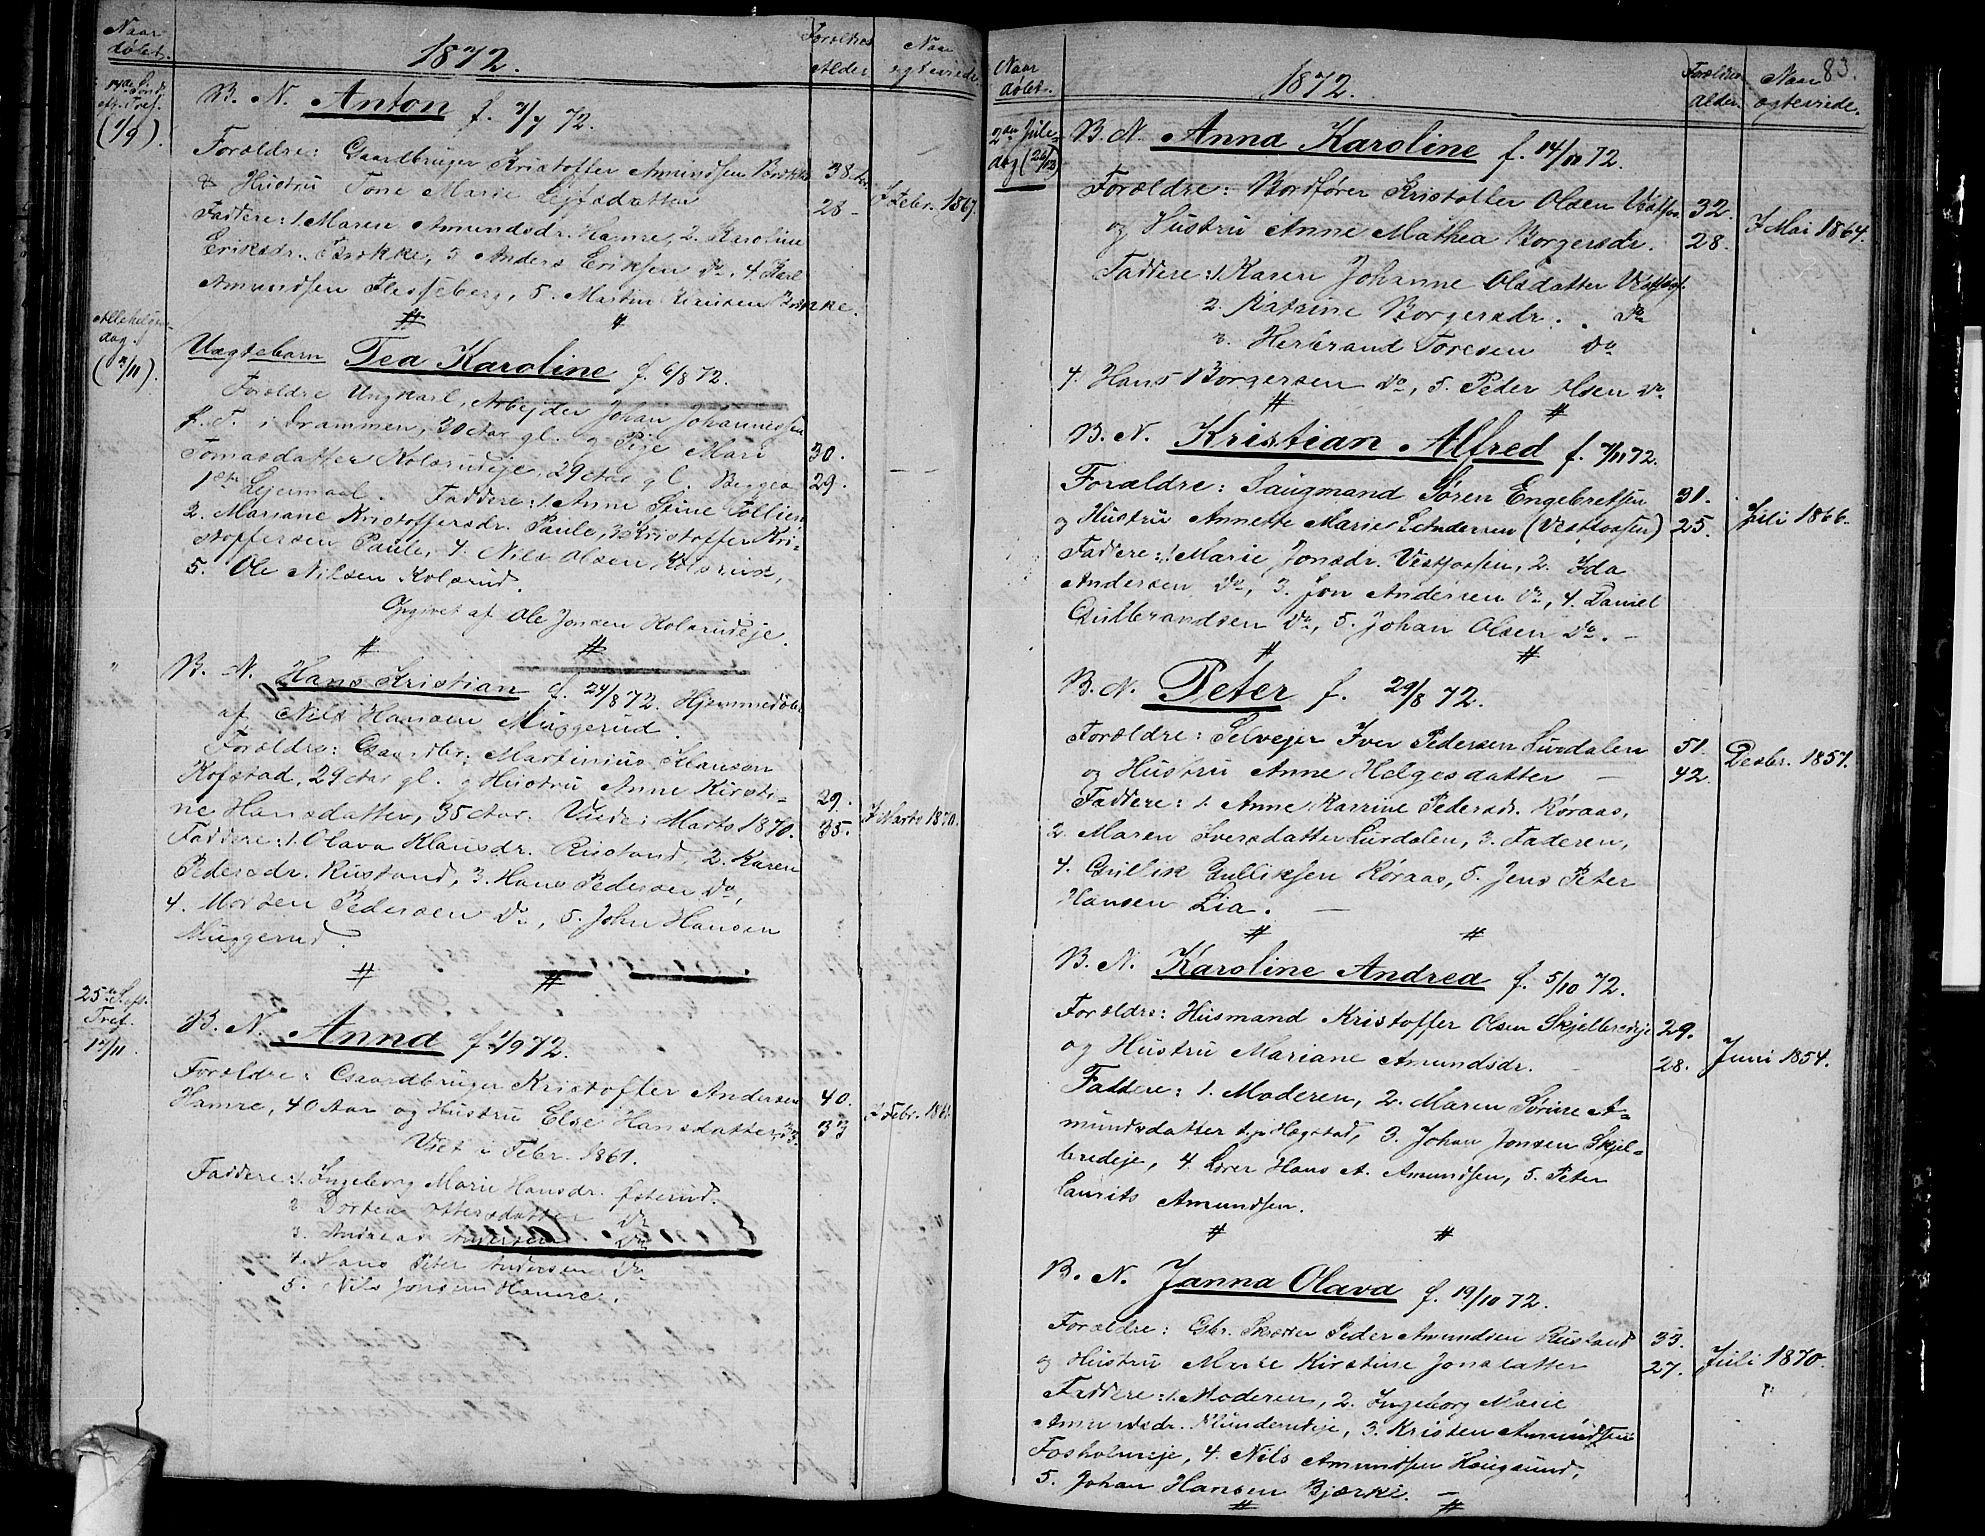 Naar
døbt.
1872.
Forældres
Alder
Naar
egteviede
B. N. Anton f. 7/7 72.
(1/9).
Forældre: Gaardbruger Kristoffer Amundsen Brække
38
& Hustru Tone Marie Lejfsdatter
28 -
I Febr. 1867.
Faddere: 1. Maren Amundsdr. Hamre, 2. Karoline
Eriksdr. Brække, 3. Anders Eriksen do, 4. Karl
Amundsen Flesseberg, 5. Martin
Allehelgen-
dag.
(3/11).
Uægtebarn Tea Karoline f. 6/8 72.
Forældre Ungkarl, Arbejder Johan Johannessen
f. T. i Drammen, 30 Aar gl. og Pige Mari
30.
Tomasdatter Kolsrudeje, 29 Aar gl. Begges
29.
1ste Lejermaal. Faddere: 1. Anne Stine Tollien
2. Mariane Kristoffersdr. Paule, 3. Kristoffer Kri-
stoffersen Paule, 4. Nils Olsen Kolsrud,
5. Ole Nilsen Kolsrud.
Opgivet af Ole Jonsen Kolsrudeje.
B. N. Hans Kristian f. 24/8 72. Hjemmedøbt
af Nils Hansen Muggerud.
Forældre: Gaardbr. Martinius Klausen
Kofstad, 29 Aar gl. og Hustru Anne Kirsti-
29.
ne Hansdatter, 35 Aar. Viede i Marts 1870.
35.
I Marts 1870.
Faddere: 1. Olava Klausdr. Rustand, 2. Karen
Pedersdr. Rustand, 3. Hans Pedersen do,
4. Morten Pedersen do, 5. John Hansen
Muggerud.
25de S. eft.
Tref.
17/11.
B. N. Anna f. 1/9 72.
Forældre: Gaardbruger Kristoffer Andersen
40.
Hamre, 40 Aar og Hustru Else Hansdatter, 33.
33
I Febr. 1861.
Viet i Febr. 1861.
Faddere: 1. Ingeborg Marie Hansdr. Østerud.
2. Dortea Ottersdatter do
3. Andreas Andersen do
4. Hans Peter Andersen do
5. Nils Jonsen Hamre.
Naar
døbt.
1872.
Forældres
Alder.
Naar
egteviede.
83.
2den Jule-
dag (26/12)
B. N. Anna Karoline f. 14/11 72.
Forældre: Bordfører Kristoffer Olsen Vestfos.
32.
og Hustru Anne Mathea Borgersdr.
28.
I Mai 1864.
Faddere: 1. Karen Johanne Olsdatter Vestfos.
2. Katrine Borgersdr. do
3. Herbrand Toresen do
4. Hans Borgersen do, 5. Peder Olsen do
B. N. Kristian Alfred f. 7/11 72.
Forældre: Saugmand Søren Engebretsen
31.
og Hustru Annette Marie Andersen (Vestfossen)
25.
Juli 1866.
Faddere: 1. Marie Jonsdr. Vestfossen, 2. Ida
Andersen do, 3. Jon Andersen do, 4. Daniel
Gulbrandsen do, 5. Johan Olsen do. -
B. N. Peter f. 29/8 72.
Forældre: Selvejer Iver Pedersen Surdalen
51.
og Hustru Anne Helgesdatter -
42.
Desbr. 1857.
Faddere: 1. Anne Katrine Pedersdr. Køraas,
2. Maren Iversdatter Surdalen, 3. Faderen,
4. Gullik Gulliksen Køraas, 5. Jens Peter
Hansen Lia. -
B. N. Karoline Andrea f. 5/10 72.
Forældre: Husmand Kristoffer Olsen Skjelbredeje
29.
og Hustru Mariane Amundsdr.
28.
Juni 1854.
Faddere: 1. Moderen, 2. Maren Sørine A-
mundsdatter t. p. Hægstad, 3. Johan Jonsen Skjel-
bredeje, 4. Lærer Hans A. Amundsen, 5. Peter
Laurits Amundsen.
B. N. Janna Olava f. 19/10 72.
Forældre: Gbr. Skrædder Peder Amundsen Rustand
33.
og Hustru Marte Kirstine Jonsdatter
27.
Juli 1870.
Faddere: 1. Moderen, 2. Ingeborg Marie
Amundsdr. Klunderudeje, 3. Kristen Amundsen
Fosholmeje, 4. Nils Amundsen Haugsund,
5. Johan Hansen Bjærke. -